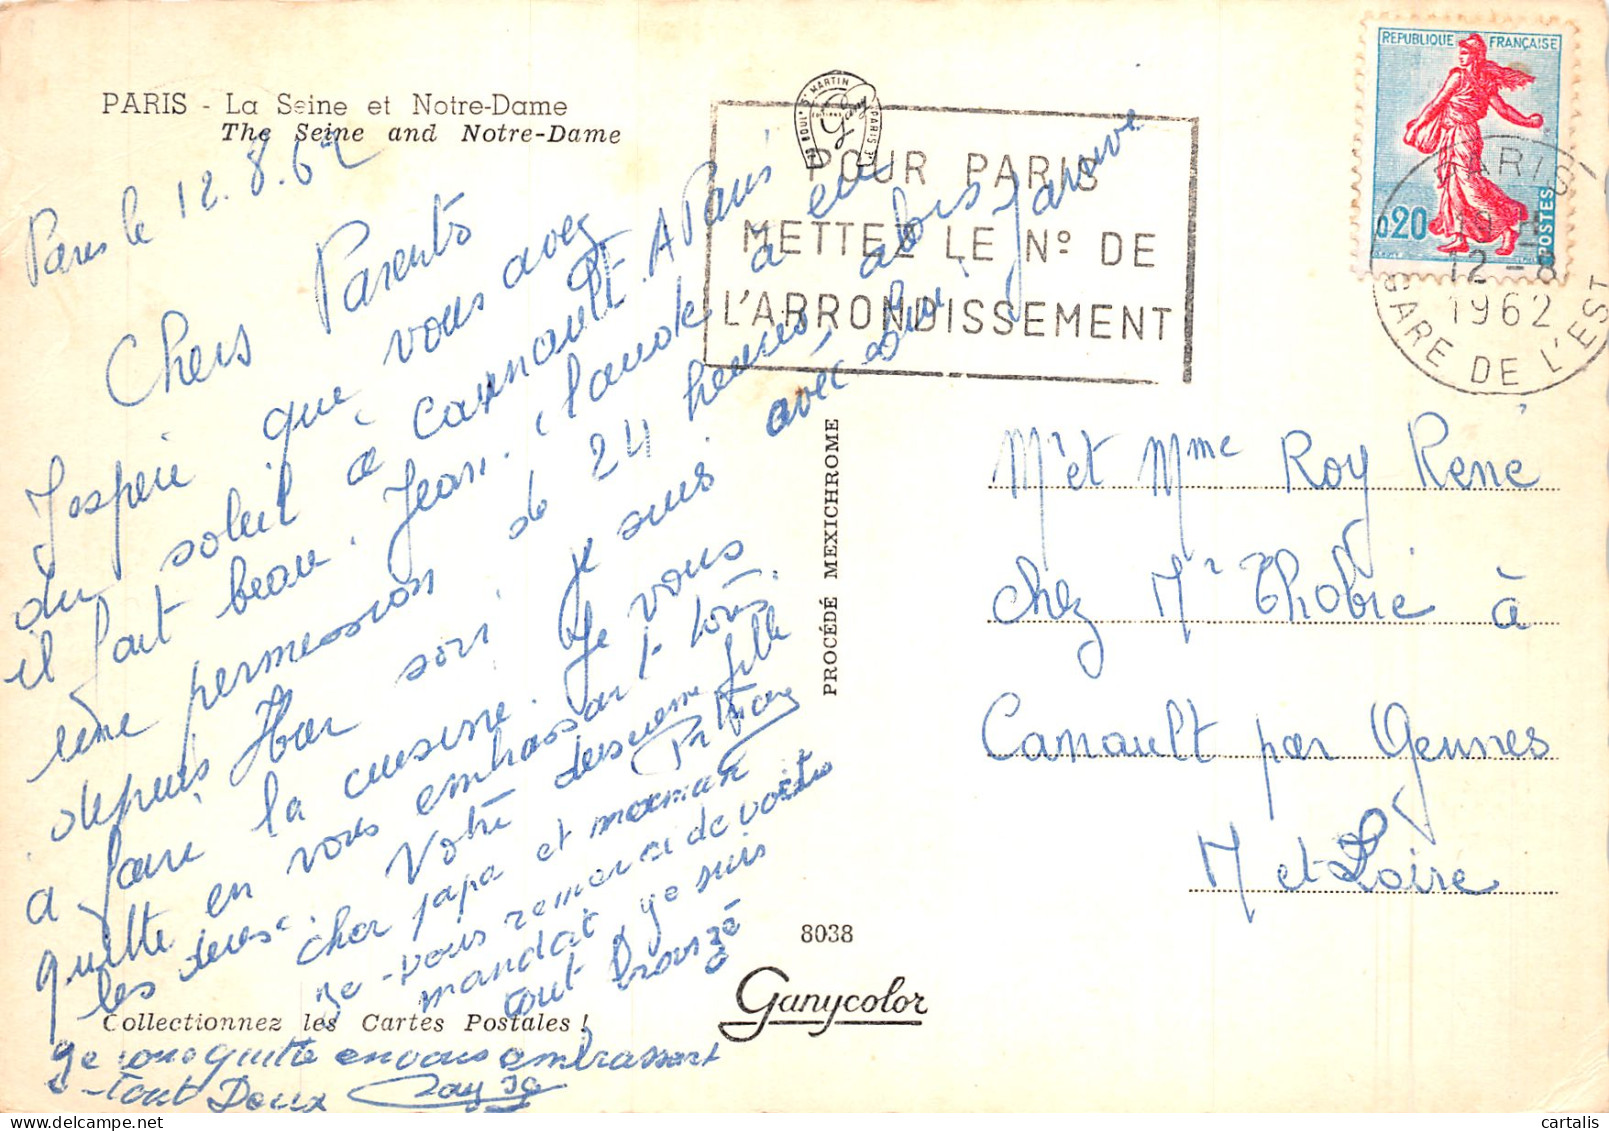 PARIS - La Seine et Notre-Dame
The Seine and Notre-Dame
Paris le 12.8.62
Chers Parents
J'espère que vous avez
du soleil à Carnault. A Paris
il fait beau. Jean. Claude a eu
une permission de 24 heures, alors
depuis Hier soir je suis avec lui
a faire la cuisine. Je vous
quitte en vous embrassant tous
les deux. Votre deuxieme fille
cher papa et maman
ge vous remerci de votre
mandat ge suis
tout bronzé
Collectionnez les Cartes Postales !
ge vous quitte en vous embrassant
tout Doux
POUR PARIS
METTEZ LE Nº DE
L'ARRONDISSEMENT
REPUBLIQUE FRANÇAISE
0,20
POSTES
PARIS
12 - 8
1962
GARE DE L'EST
PROCÉDÉ MEXICHROME
Mr et Mme Roy René
chez Mr Thobie à
Canault par Gennes
M et Loire
8038
Ganycolor
CARTALIS on www.delcampe.net